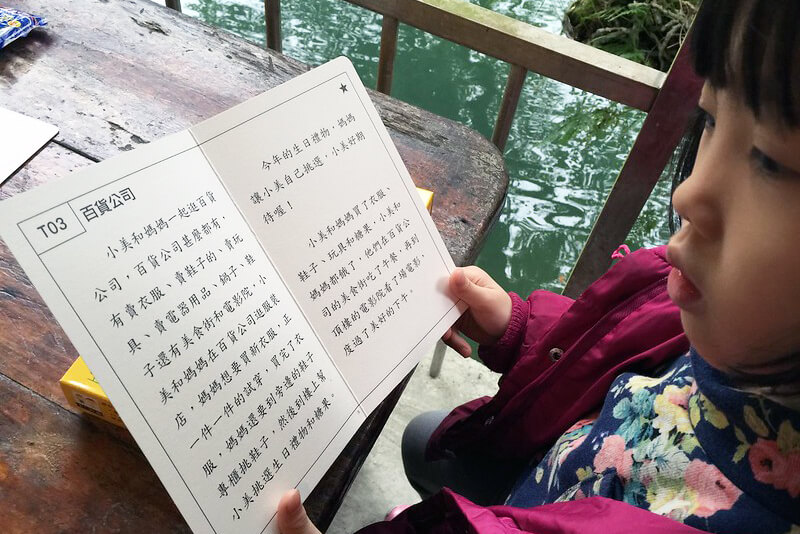 T03 百貨公司
小美和媽媽一起逛百貨
公司，百貨公司甚麼都有，
有賣衣服、賣鞋子的、賣玩
具、賣電器用品、鍋子、鞋
子還有美食街和電影院。小
美和媽媽在百貨公司逛服裝
店，媽媽想要買新衣服，正
一件一件的試穿，買完了衣
服，媽媽還要到旁邊的鞋子
專櫃挑鞋子，然後到樓上幫
小美挑選生日禮物和糖果。
★
今年的生日禮物，媽媽
讓小美自己挑選，小美好期
待喔！
小美和媽媽買了衣服、
鞋子、玩具和糖果，小美和
媽媽都餓了，他們在百貨公
司的美食街吃了午餐，再到
頂樓的電影院看了場電影，
度過了美好的下午。